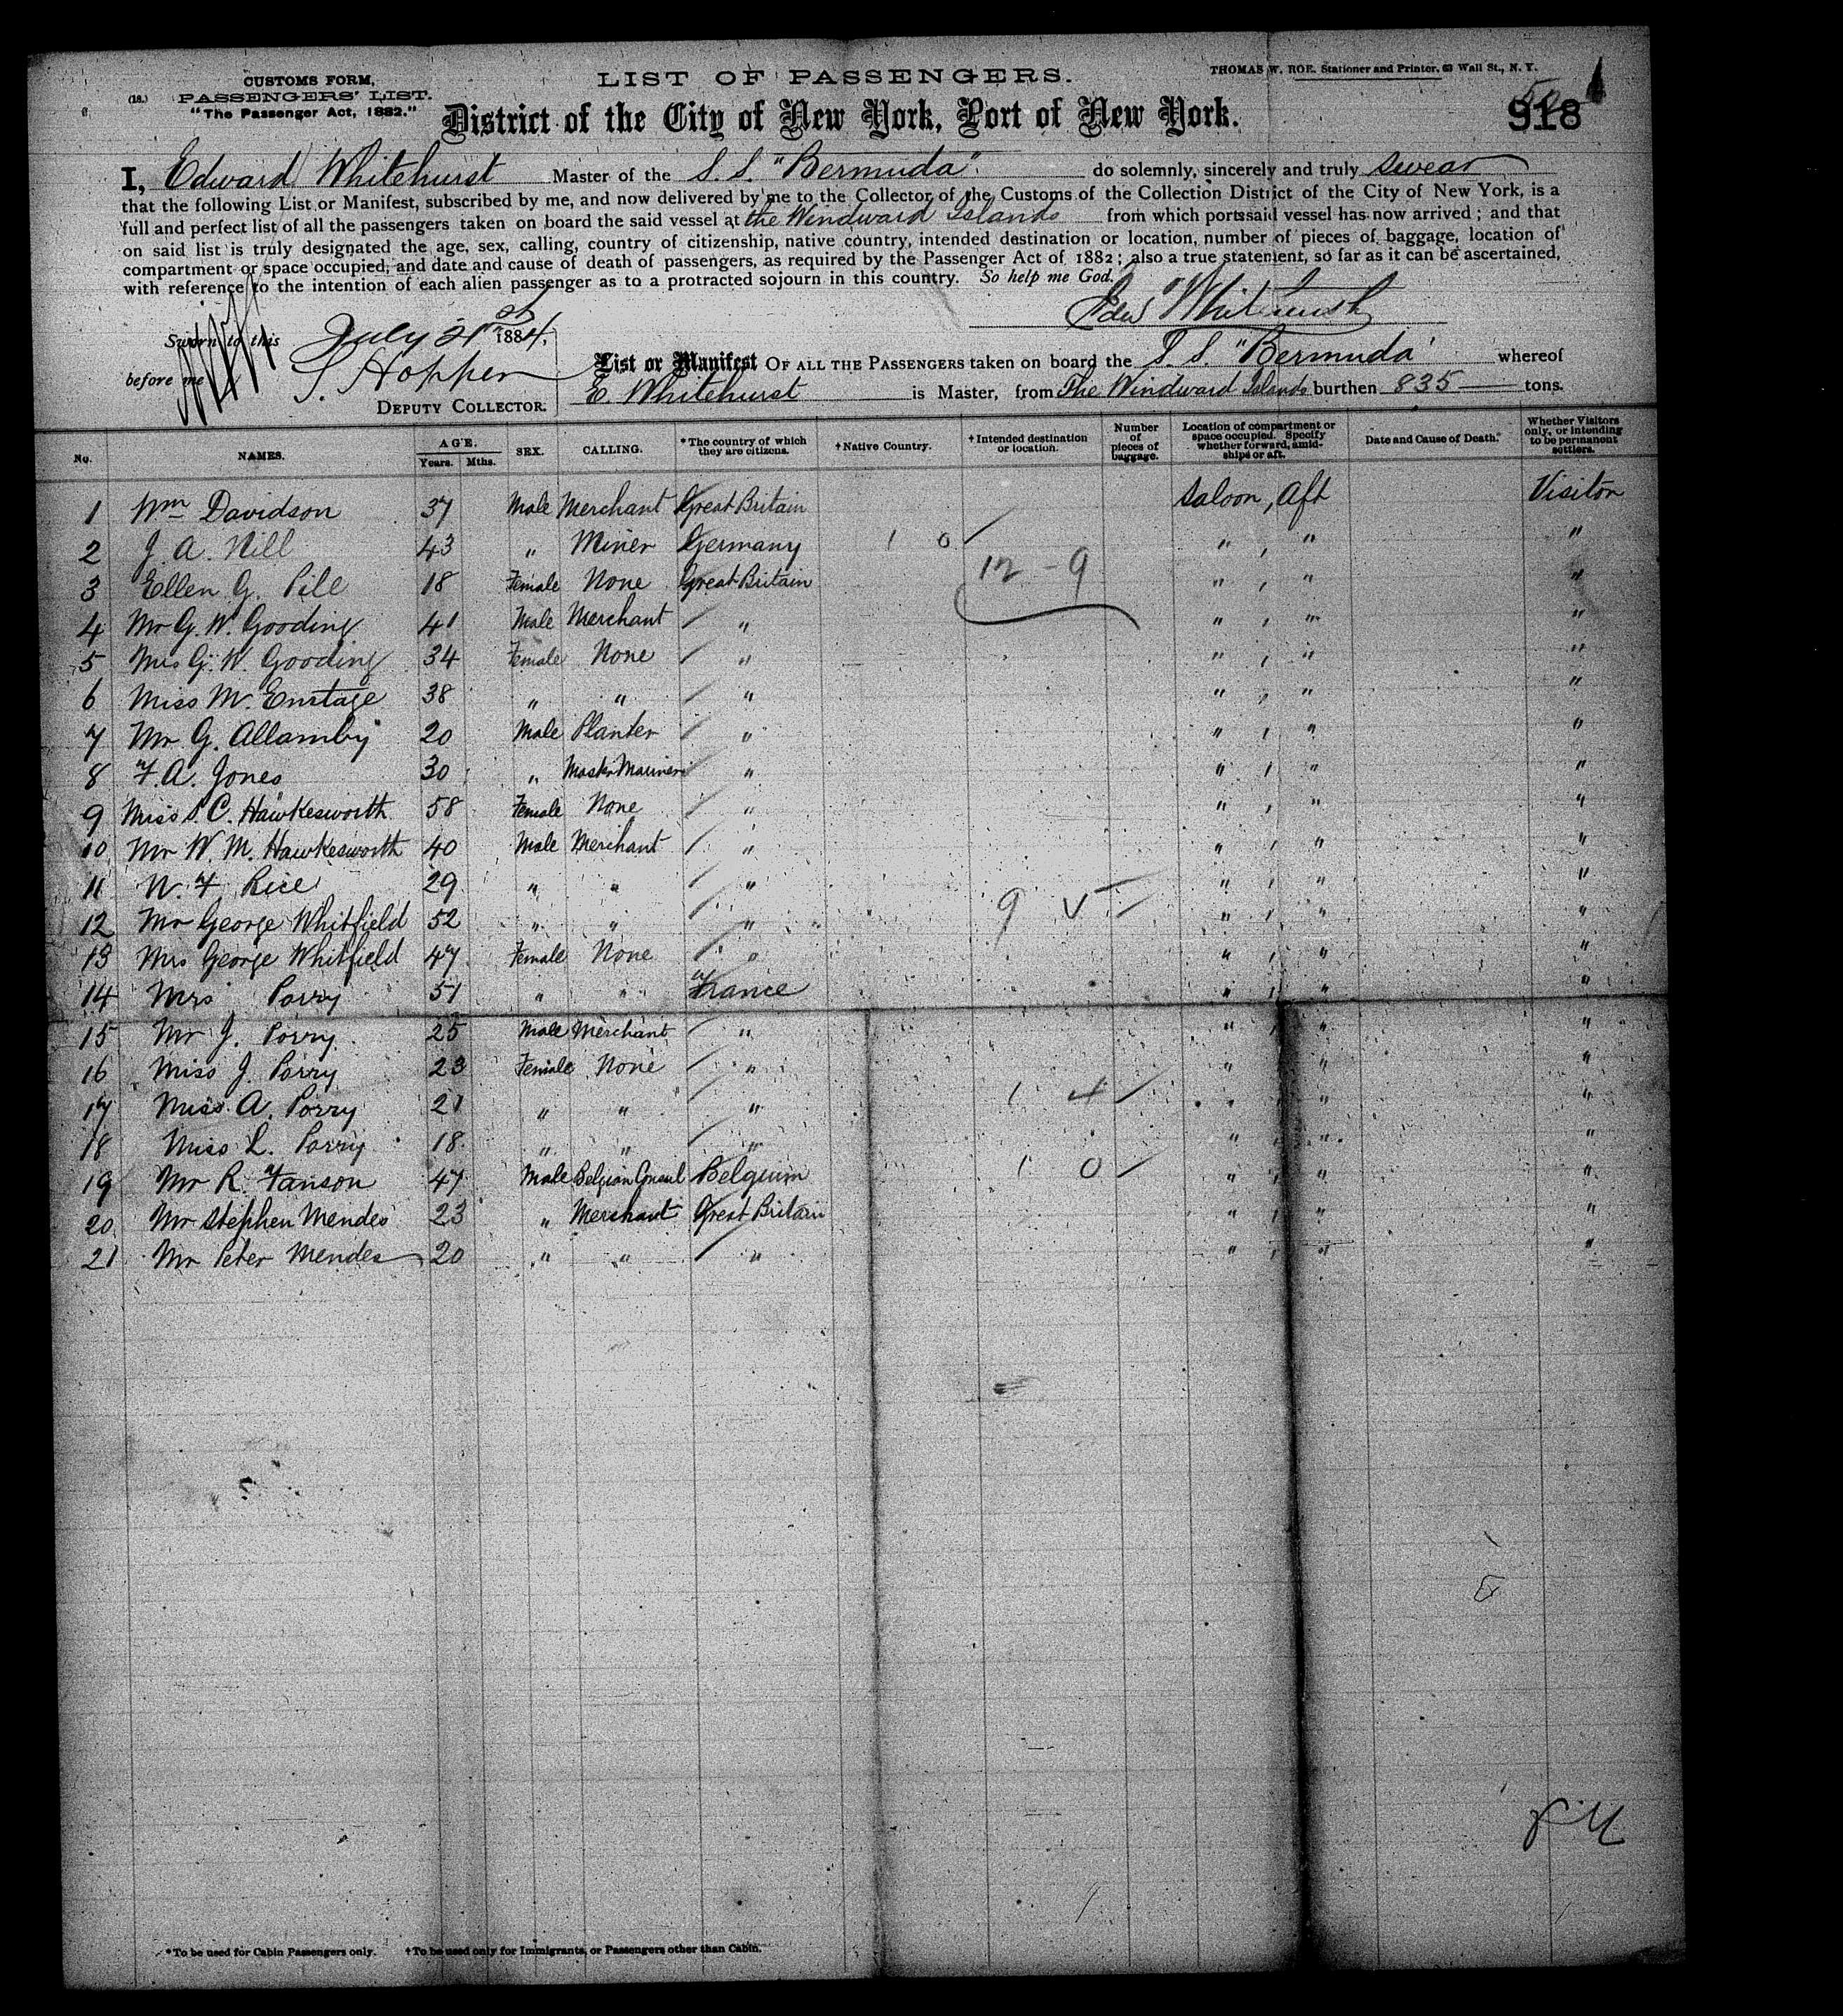 CUSTOMS FORM,
(18.) PASSENGERS' LIST.
"The Passenger Act, 1882."
LIST OF PASSENGERS.
THOMAS W. ROE, Stationer and Printer, 63 Wall St., N. Y.
District of the City of New York, Port of New York.
918
I, Edward Whitehurst Master of the S.S. "Bermuda" do solemnly, sincerely and truly swear
that the following List or Manifest, subscribed by me, and now delivered by me to the Collector of the Customs of the Collection District of the City of New York, is a
full and perfect list of all the passengers taken on board the said vessel at the Windward Islands from which port said vessel has now arrived; and that
on said list is truly designated the age, sex, calling, country of citizenship, native country, intended destination or location, number of pieces of baggage, location of
compartment or space occupied, and date and cause of death of passengers, as required by the Passenger Act of 1882; also a true statement, so far as it can be ascertained,
with reference to the intention of each alien passenger as to a protracted sojourn in this country. So help me God.
Edw Whitehurst
Sworn to this July 21st 1884,
before me S. Hopper
DEPUTY COLLECTOR.
List or Manifest OF ALL THE PASSENGERS taken on board the S.S. "Bermuda" whereof
E. Whitehurst is Master, from The Windward Islands burthen 835 tons.
No. NAMES. AGE. Years. Mths. SEX. CALLING. *The country of which they are citizens. †Native Country. †Intended destination or location. Number of pieces of baggage. Location of compartment or space occupied. Specify whether forward, amidships or aft. Date and Cause of Death. Whether Visitors only, or intending to be permanent settlers.
1 Wm Davidson 37 Male Merchant Great Britain Saloon, Aft Visitor
2 J. A. Nill 43 " Miner Germany 1 0 " , " "
12 - 9
3 Ellen G. Pile 18 Female None Great Britain " , " "
4 Mr G. W. Gooding 41 Male Merchant " " , " "
5 Mrs G. W. Gooding 34 Female None " " , " "
6 Miss M. Eustage 38 " " " " , " "
7 Mr G. Allamby 20 Male Planter " " , " "
8 F. A. Jones 30 " Master Mariner " " , " "
9 Miss S. C. Hawkesworth 58 Female None " " , " "
10 Mr W. M. Hawkesworth 40 Male Merchant " " , " "
11 W. F. Rice 29 " " " " , " "
9 5
12 Mr George Whitfield 52 " " " " , " "
13 Mrs George Whitfield 47 Female None " " , " "
14 Mrs Porry 51 " " France " , " "
15 Mr J. Porry 25 Male Merchant " " , " "
16 Miss J. Porry 23 Female None " " , " "
17 Miss A. Porry 21 " " " 1 4 " , " "
18 Miss L. Porry 18 " " " " , " "
19 Mr R. Fanson 47 Male Belgian Consul Belgium 1 0 " , " "
20 Mr Stephen Mendes 23 " Merchant Great Britain " , " "
21 Mr Peter Mendes 20 " " " " , " "
*To be used for Cabin Passengers only. †To be used only for Immigrants, or Passengers other than Cabin.